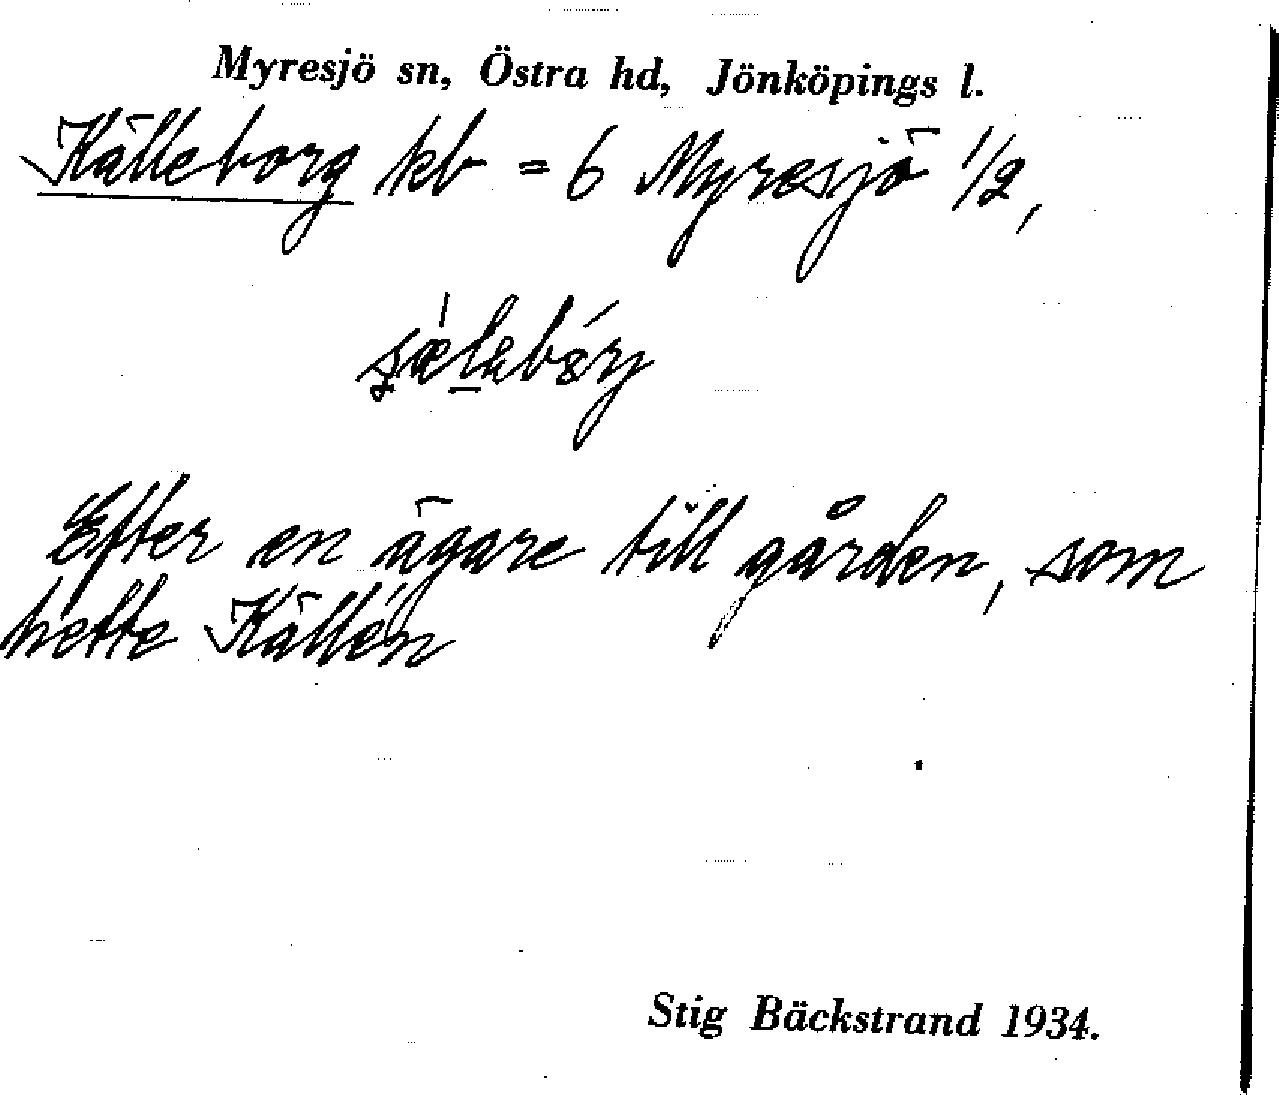 Myresjö sn, Östra hd, Jönköpings l.
Källeborg kb = 6 Myresjö 1/2,
Efter en ägare till gården, som
hette Källén
Stig Bäckstrand 1934.